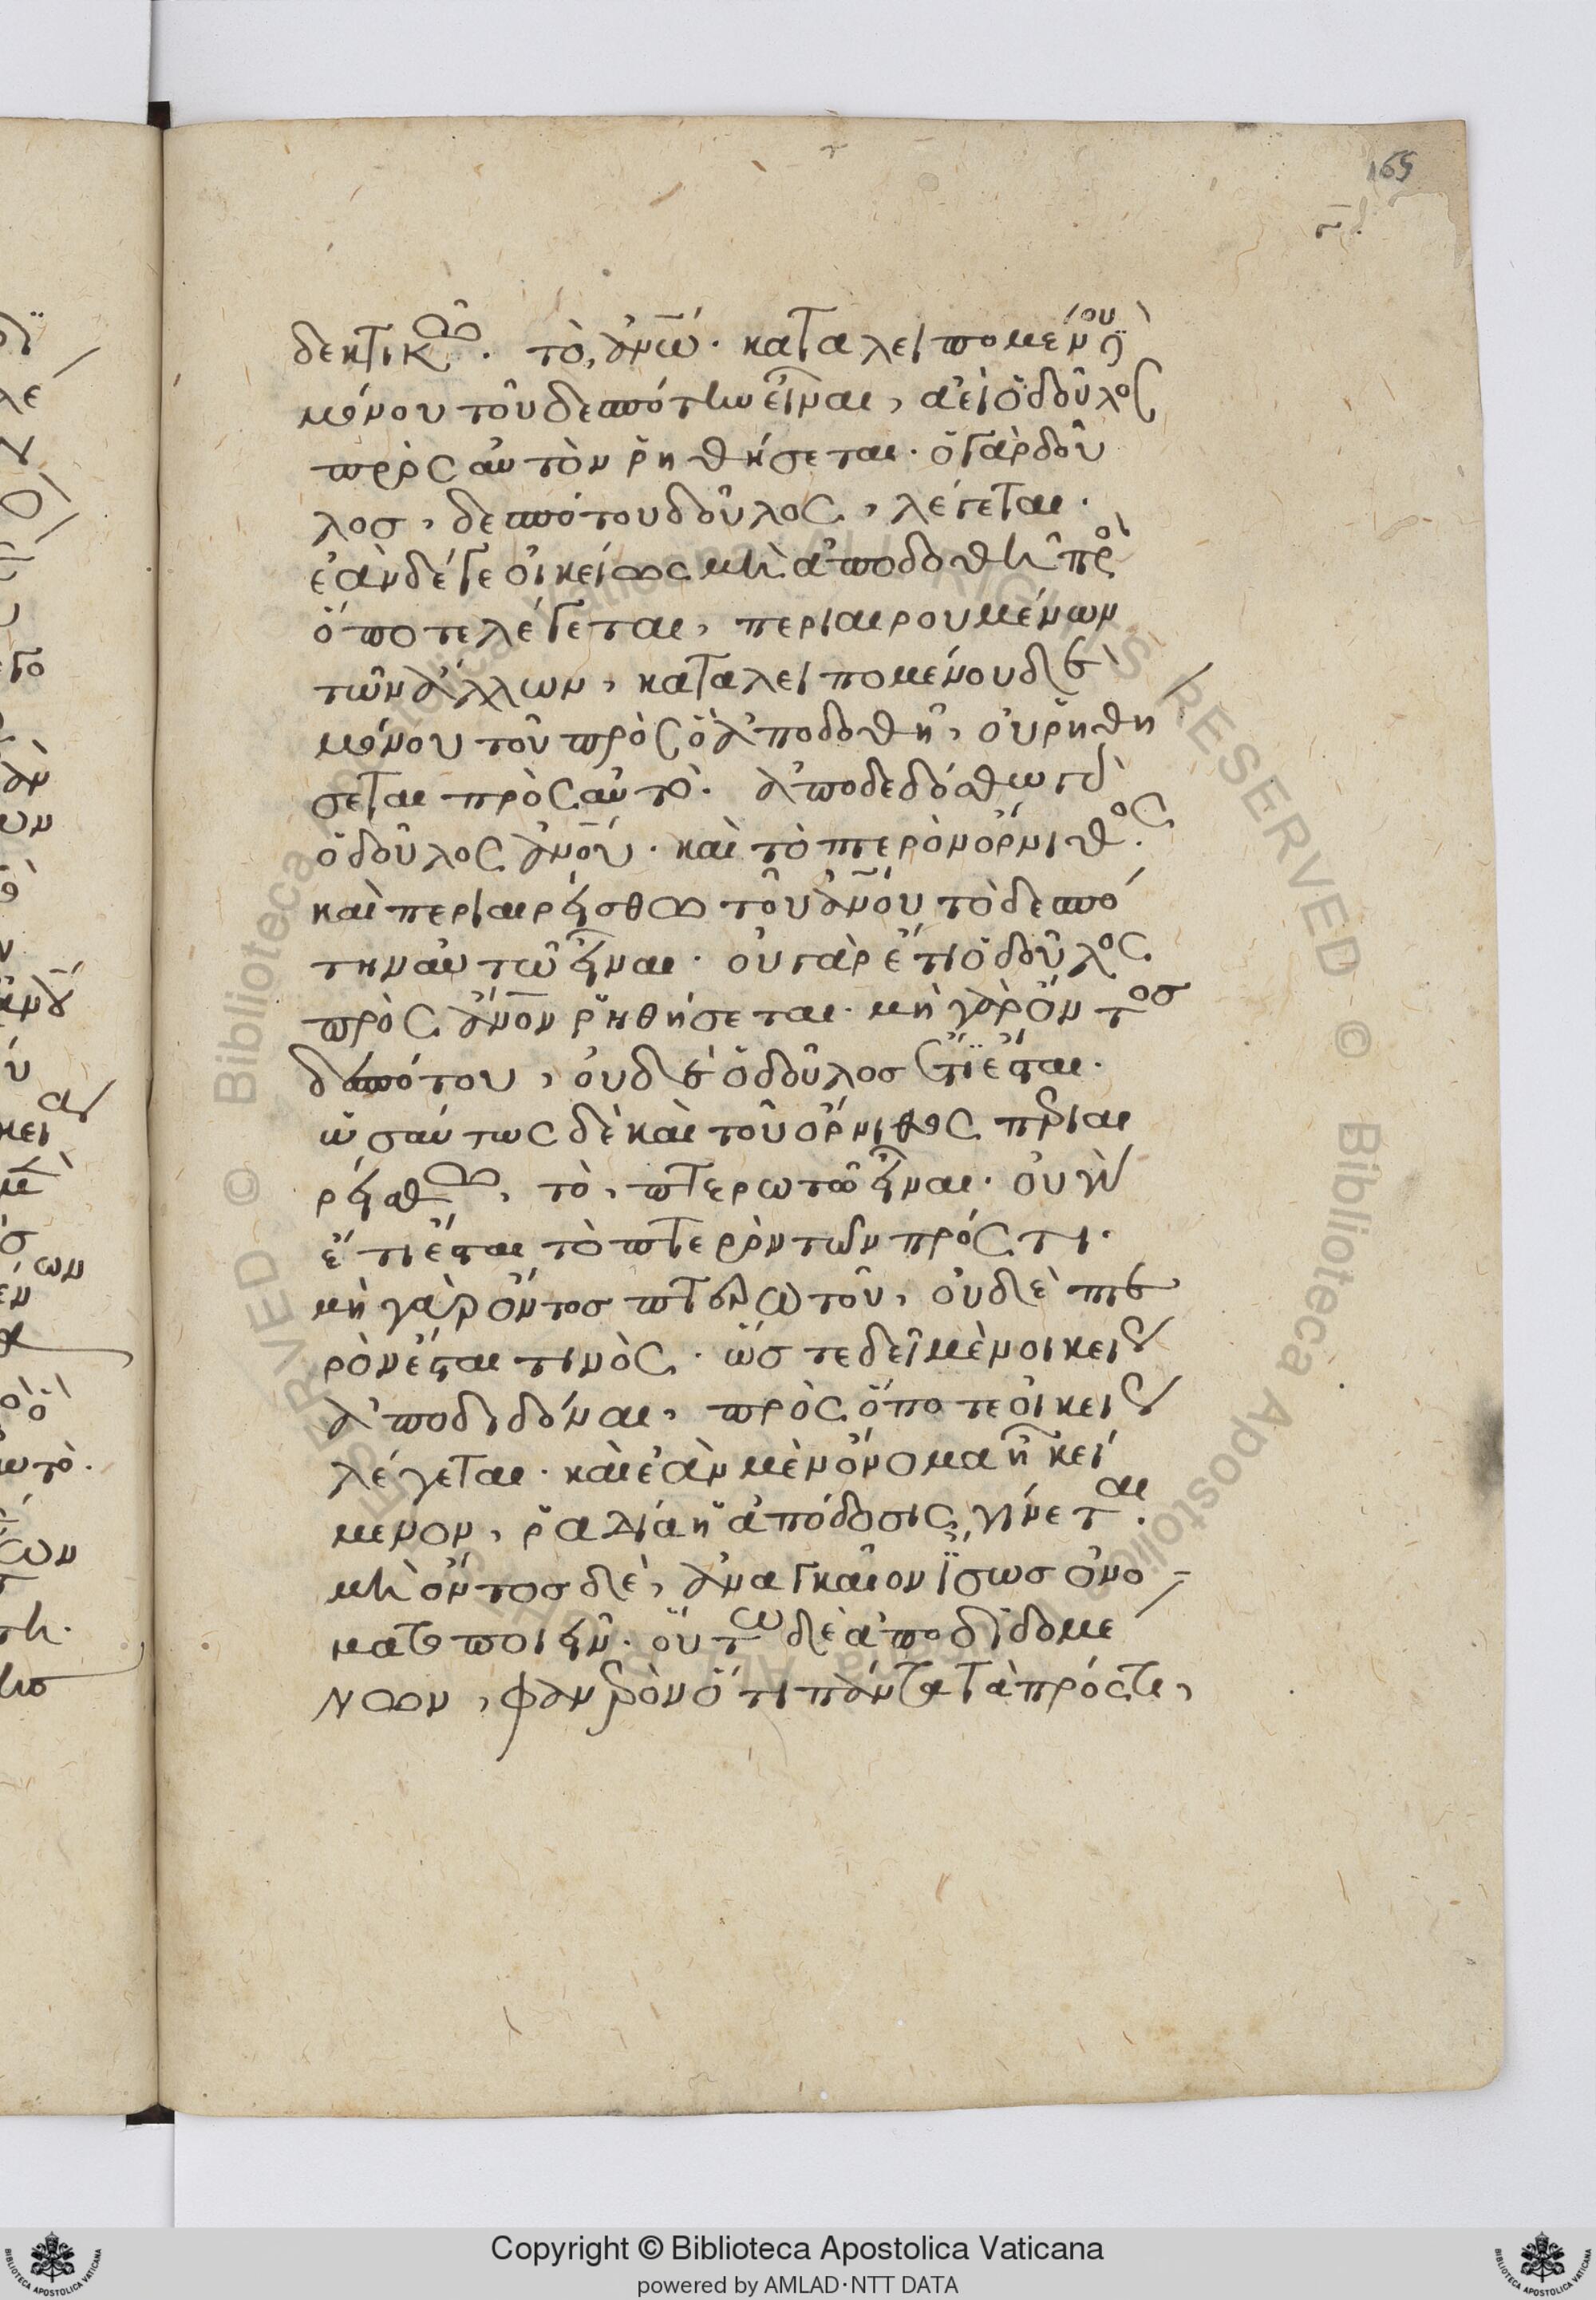 165
δεκτικῶ. τὸ, ἀν̅ω̅. καταλειπομένου δὲ
μόνου τοῦ δεσπότην εἶναι, ἀεὶ ὁ δοῦλος
πρὸς αὐτὸν ῥηθήσεται. ὁ γὰρ δοῦ
λοσ, δεσπότου δοῦλος, λέγεται.
ἐὰν δέ γε οἰκείως μὴ ἀποδοθῆ πρὸς
ὅ ποτε λέγεται, περιαιρουμένων
τῶν ἄλλων, καταλειπομένου δὲ
μόνου τοῦ πρὸς ὃ ἀποδοθῆ, οὐ ῥηθή
σεται πρὸς αὐτό. ἀποδεδόσθω γὰρ
ὁ δοῦλος ἀν̅ο̅υ̅. καὶ τὸ πτερὸν ὄρνιθος.
καὶ περιαιρείσθω τοῦ ἀν̅ο̅υ̅ τὸ δεσπό
την αὐτῶ εἶναι. οὐ γὰρ ἔτι ὁ δοῦλος
πρὸς ἄν̅ο̅ν̅ ῥηθήσεται. μὴ γὰρ ὄντοσ
δεσπότου, οὐδὲ ὁ δοῦλοσ ἔτι ἔσται.
ὡσαύτως δὲ καὶ τοῦ ὄρνιθος περιαι
ρείσθω, τὸ, πτερωτῶ εἶναι. οὐ γὰρ
ἔτι ἔσται τὸ πτερὸν τῶν πρός τι.
μὴ γὰρ ὄντοσ πτερωτοῦ, οὐδὲ πτε
ρὸν ἔσται τινὸς. ὥστε δεῖ μὲν οἰκείως
ἀποδιδόναι, πρὸς ὅ ποτε οἰκείως
λέγεται. καὶ ἐὰν μὲν ὄνομα ἦ κεί
μενον, ῥαδία ἡ ἀπόδοσις γίνεται.
μὴ ὄντοσ δὲ, ἀναγκαῖον ἴσωσ ὀνο
ματοποιεῖν. οὕτω δὲ ἀποδιδομέ
νων, φανερὸν ὅτι πάντα τὰ πρός τι,
Copyright © Biblioteca Apostolica Vaticana
powered by AMLAD·NTT DATA